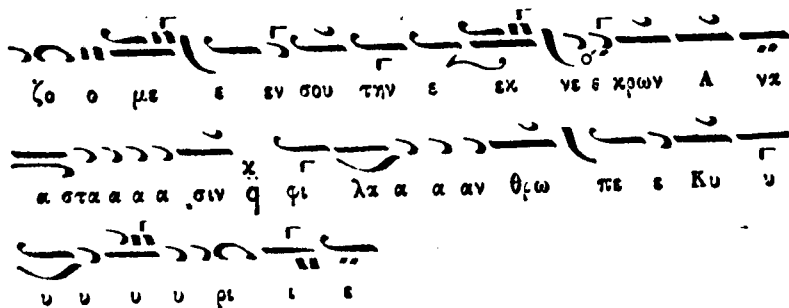 ζο ο με ε εν σου την ε εκ νε ε κρων Α να
α στα α α α σιν φι λα α α αν θρω πε ε Κυ υ
υ υ υ υ ρι ι ε